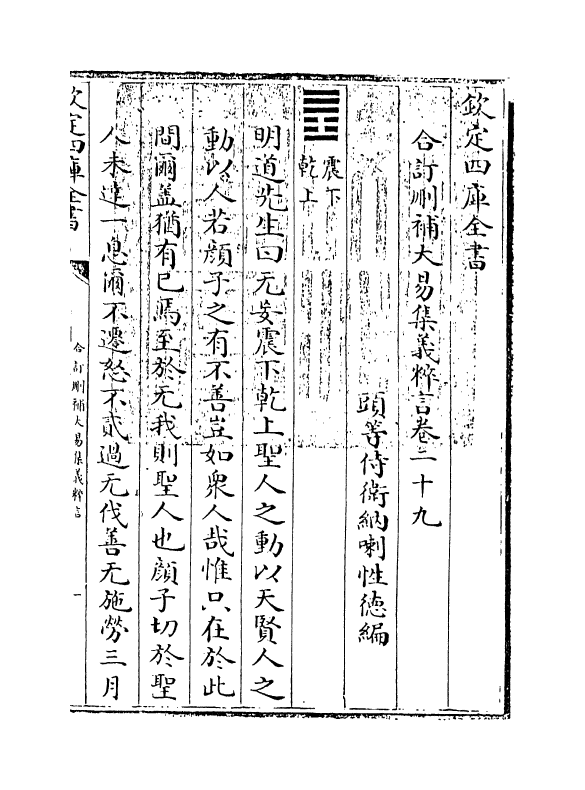 欽定四庫全書
合訂刪補大易集義粹言卷二十九
頭等侍衛納喇性德編
震下
乾上
明道先生曰无妄震下乾上聖人之動以天賢人之
動以人若顔子之有不善豈如衆人哉惟只在於此
間爾盖猶有己焉至於无我則聖人也顔子切於聖
人未達一息爾不遷怒不貳過无伐善无施勞三月
欽定四庫全書
合訂刪補大易集義粹言
一